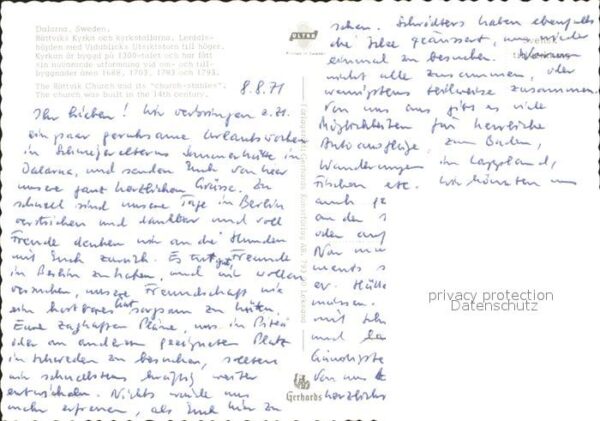 Dalarna, Sweden.
Rättviks Kyrka och kyrkstallarna. Lerdals-
höjden med Vidablicks Utsiktstorn till höger.
Kyrkan är byggd på 1300-talet och har fått
sin nuvarande utformning vid om- och till-
byggnader åren
The Rättvik Church and its "church-stables".
The church was built in the 14th century.
8.8.71
Ihr Lieben! Wir verbringen z.Zt.
ein paar geruhsame Urlaubswochen
in Schwiegerelterns Sommerhütte in
Dalarna, und senden Euch von hier
unsere ganz herzlichen Grüsse. Zu
schnell sind unsere Tage in Berlin
verstrichen und dankbar und voll
Freude denken wir an die Stunden
mit Euch zurück. Es tut gut, Freunde
in Berlin zu haben, und wir wollen
versuchen, unsere Freundschaft wie
ein kostbares Gut sorgsam zu hüten.
Eure zaghaften Pläne, uns in Piteå
oder an anderem geeigneten Platz
in Schweden zu besuchen, sollten
wir schnellstens kräftig weiter
entwickeln. Nichts würde uns
mehr erfreuen, als Euch hier zu
sehen. Schröders haben ebenfalls
die Idee geäussert, uns wieder
einmal zu besuchen. Warum
nicht alle zusammen, oder
wenigstens teilweise zusammen.
Von uns aus gibt es viele
Möglichkeiten für herrliche
Autoausflüge, zum Baden,
Wanderungen in Lappland,
Fischen etc. Wir könnten uns
auch ge
an den S
oder auf
Nor
ments s
ev. Hütte
müssen.
mit Ih
und la
Günstigste
Von uns
herzlichs
ULTRA
Fotograferat Gerhards Kunstförlag AB, 793 00 Leksand
Gerhards
privacy protection
Datenschutz